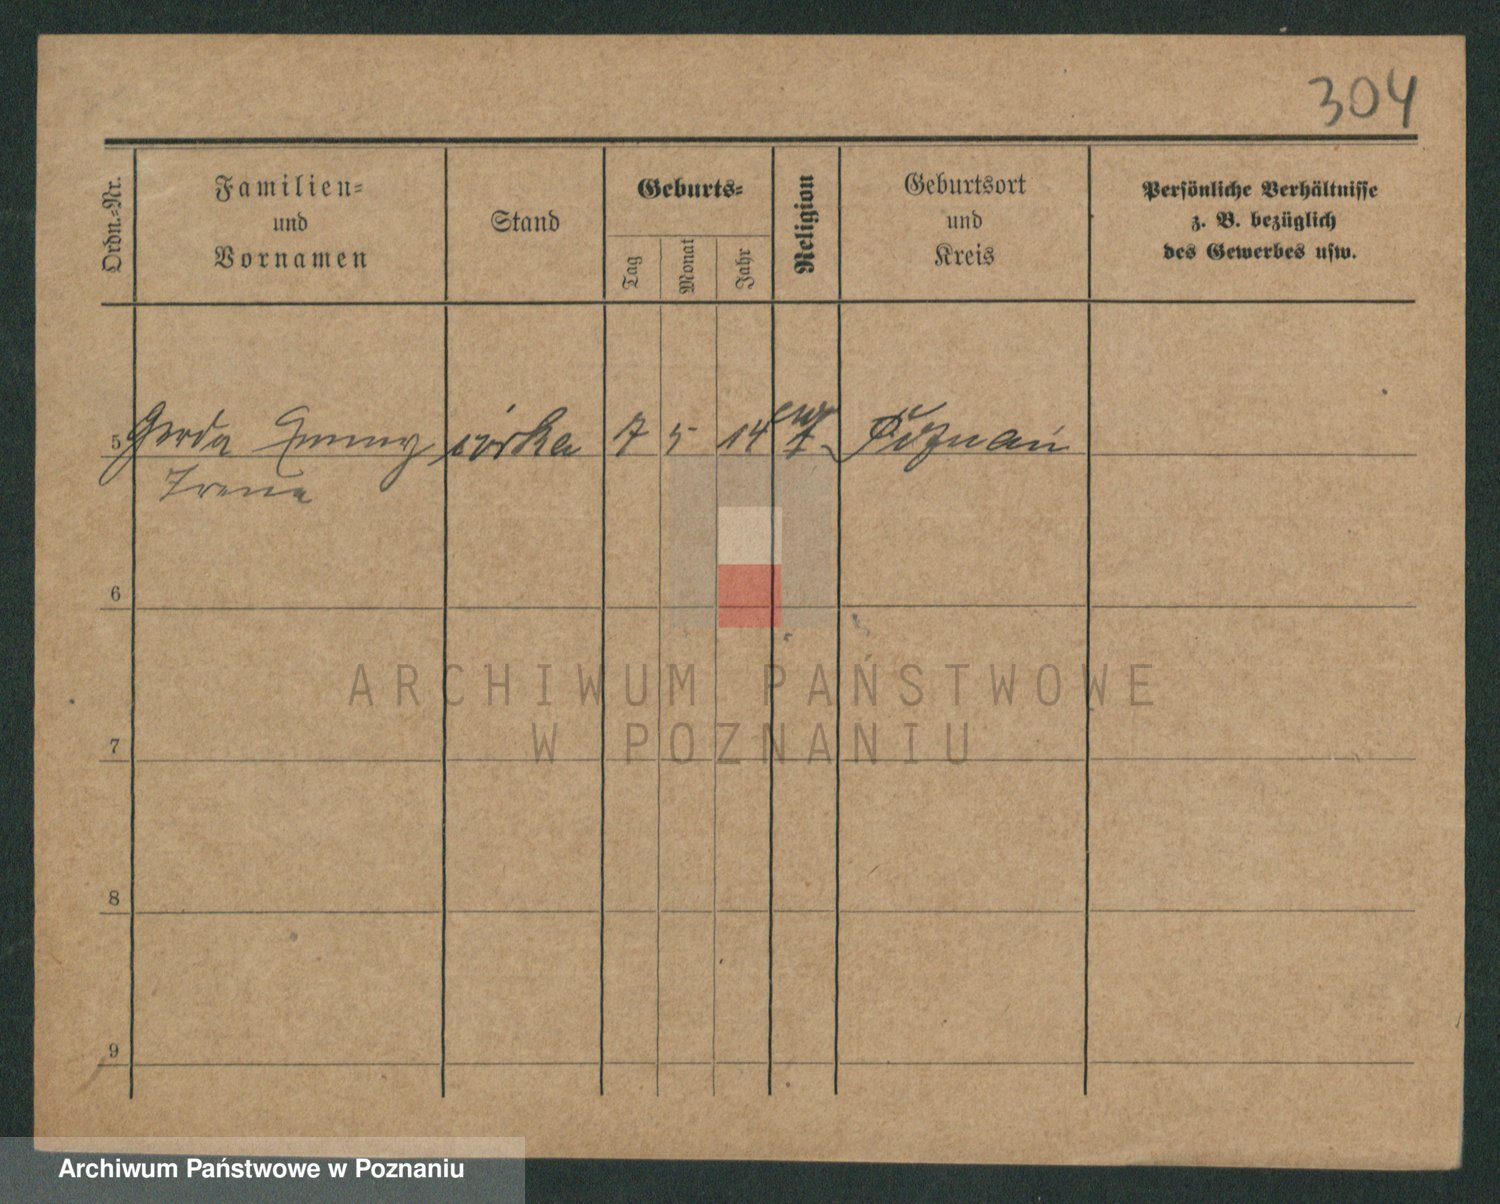 304
Ordn.-Nr.
Familien-
und
Vornamen
Stand
Geburts-
Tag
Monat
Jahr
Religion
Geburtsort
und
Kreis
Persönliche Verhältnisse
z. B. bezüglich
des Gewerbes usw.
5 Gerda Emmy córka 7 5 14 Poznań
Irena
6
7
8
9
ARCHIWUM PAŃSTWOWE
W POZNANIU
Archiwum Państwowe w Poznaniu